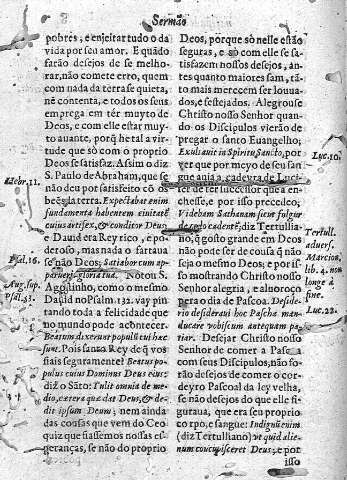 Sermão
pobres, e enjeitar tudo o da
vida por seu amor. E quãdo
farão desejos de se melho-
rar, não comete erro, quem
com nada da terra se quieta,
nē contenta, e todos os seus
emprega em tér muyto de
Deos, e com elle estar muy-
to auante, porq̃ he tal a vir-
tude que só com o proprio
Deos se satisfaz. Assim o diz
S. Paulo de Abraham, que se
não deu por satisfeito cõ os
bēes da terra. Expectabat enim
fundamenta habentem ciuitatē
cuius artifex, & conditor Deus
e Dauid era Rey rico, e po-
deroso, mas nada o fartaua
se não Deos; Satiabor cum ap-
paruerit gloria tua. Notou S.
Agostinho, como o mesmo
Dauid no Psalm. 132. vay pin-
tando toda a felicidade que
no mundo pode acontecer.
Beatum dixerũt populũ cui hæc
sunt. Pois santo Rey de q̃ vos
fiais seguramente? Beatus po-
pulus cuius Dominus Deus eius;
diz o Sãto: Tulit omnia de me-
dio, cætera quæ dat Deus, & de-
dit ipsum Deum; nem ainda
das cousas que vem do Ceo
quiz que fiassemos nossas es-
peranças, se não do proprio
Hebr. 11.
Psal. 16.
Aug. sup.
Psal. 43.
Deos, porque só nelle estão
seguras, e só com elle se sa-
tisfazem nossos desejos, an-
tes quanto maiores sam, tã-
to mais merecem ser louua-
dos, e festejados. Alegrouse
Christo nosso Senhor quan-
do os Discipulos vierão de
pregar o santo Euangelho;
Exultauit in Spiritu Sancto, por
ver que por meyo de seu san
gue auia a cadeyra de Luci-
fer de ter successor que a en-
chesse, e por isso precedeo;
Videbam Sathanam sicut fulgur
de cœlo cadentē; diz Tertullia-
no, q̃ gosto grande em Deos
não pode ser de cousa q̃ não
seja o mesmo Deos; e por is-
so mostrando Christo nosso
Senhor alegria, e aluoroço
pera o dia de Pascoa. Deside-
rio desideraui hoc Pascha man-
ducare vobiscum antequam pa-
tiar. Desejar Christo nosso
Senhor de comer a Pasc a
com seus Discipulos, não fo-
rão desejos de comer o cor-
deyro Pascoal da ley velha,
se não desejos do que elle fi-
guraua, que era seu proprio
corpo, e sangue: Indignũ enim
(diz Tertulliano) vt quid alie-
num concupisceret Deus; e por
isso
Luc. 10.
Tertull.
aduers.
Marcion,
lib. 4. non
longè à
fine.
Luc. 22.